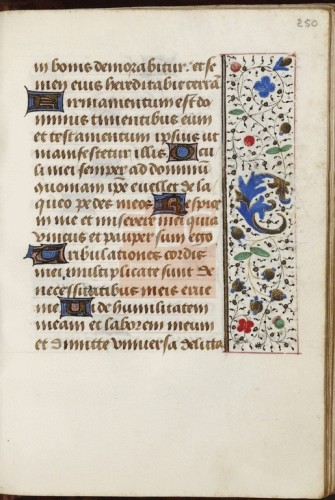 250
in bonis demorabitur. et se
men eius hereditabit terrã
Firmamentum est do
minus timentibus eum
et testamentum ipsius ut
manifestetur illis. Ocu
li mei semper ad dominũ
quoniam ipẽ euellet de la
queo pedes meos Respice
in me et miserere mei quia
vnicus et pauper sum ego
Tribulationes cordis
mei multiplicate sunt de
necessitatibus meis erue
me Vide humilitatem
meam et laborem meum
et dimitte vniuersa delicta